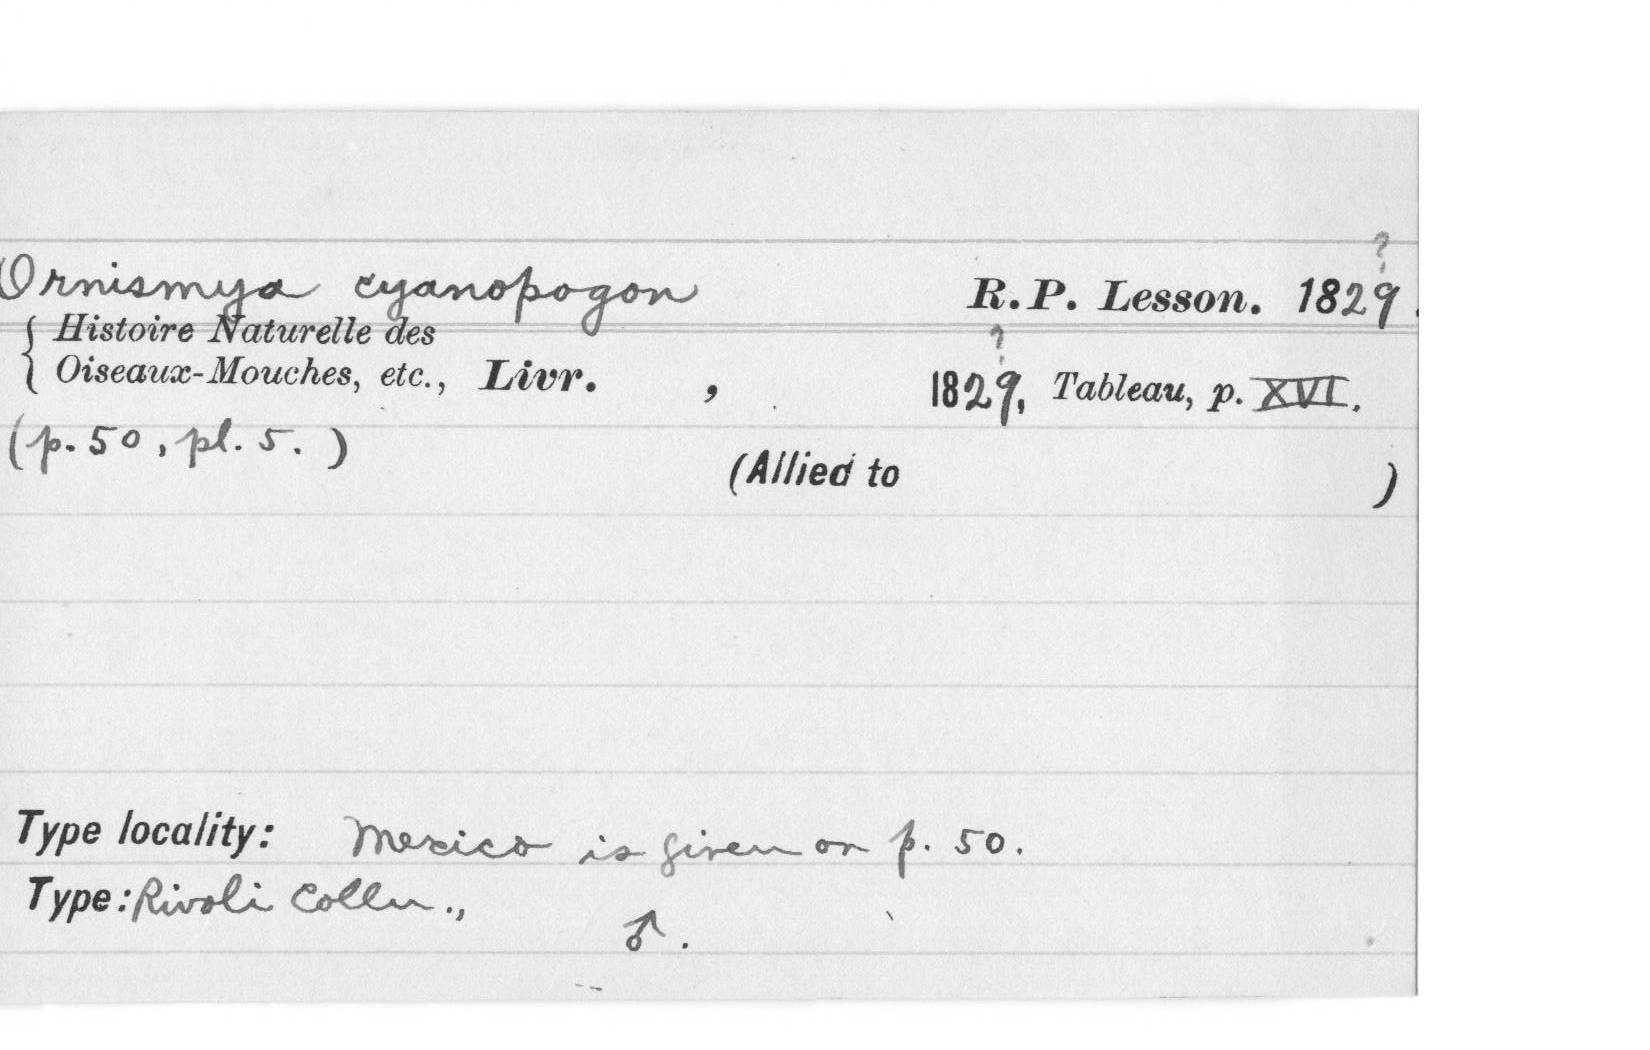 Ornismya cyanopogon R.P. Lesson. 1829?.
{ Histoire Naturelle des
Oiseaux-Mouches, etc., Livr. , 1829?, Tableau, p. XVI.
(p. 50, pl. 5. )
(Allied to )
Type locality: Mexico is given on p. 50.
Type: Rivoli Colln.,
♂.